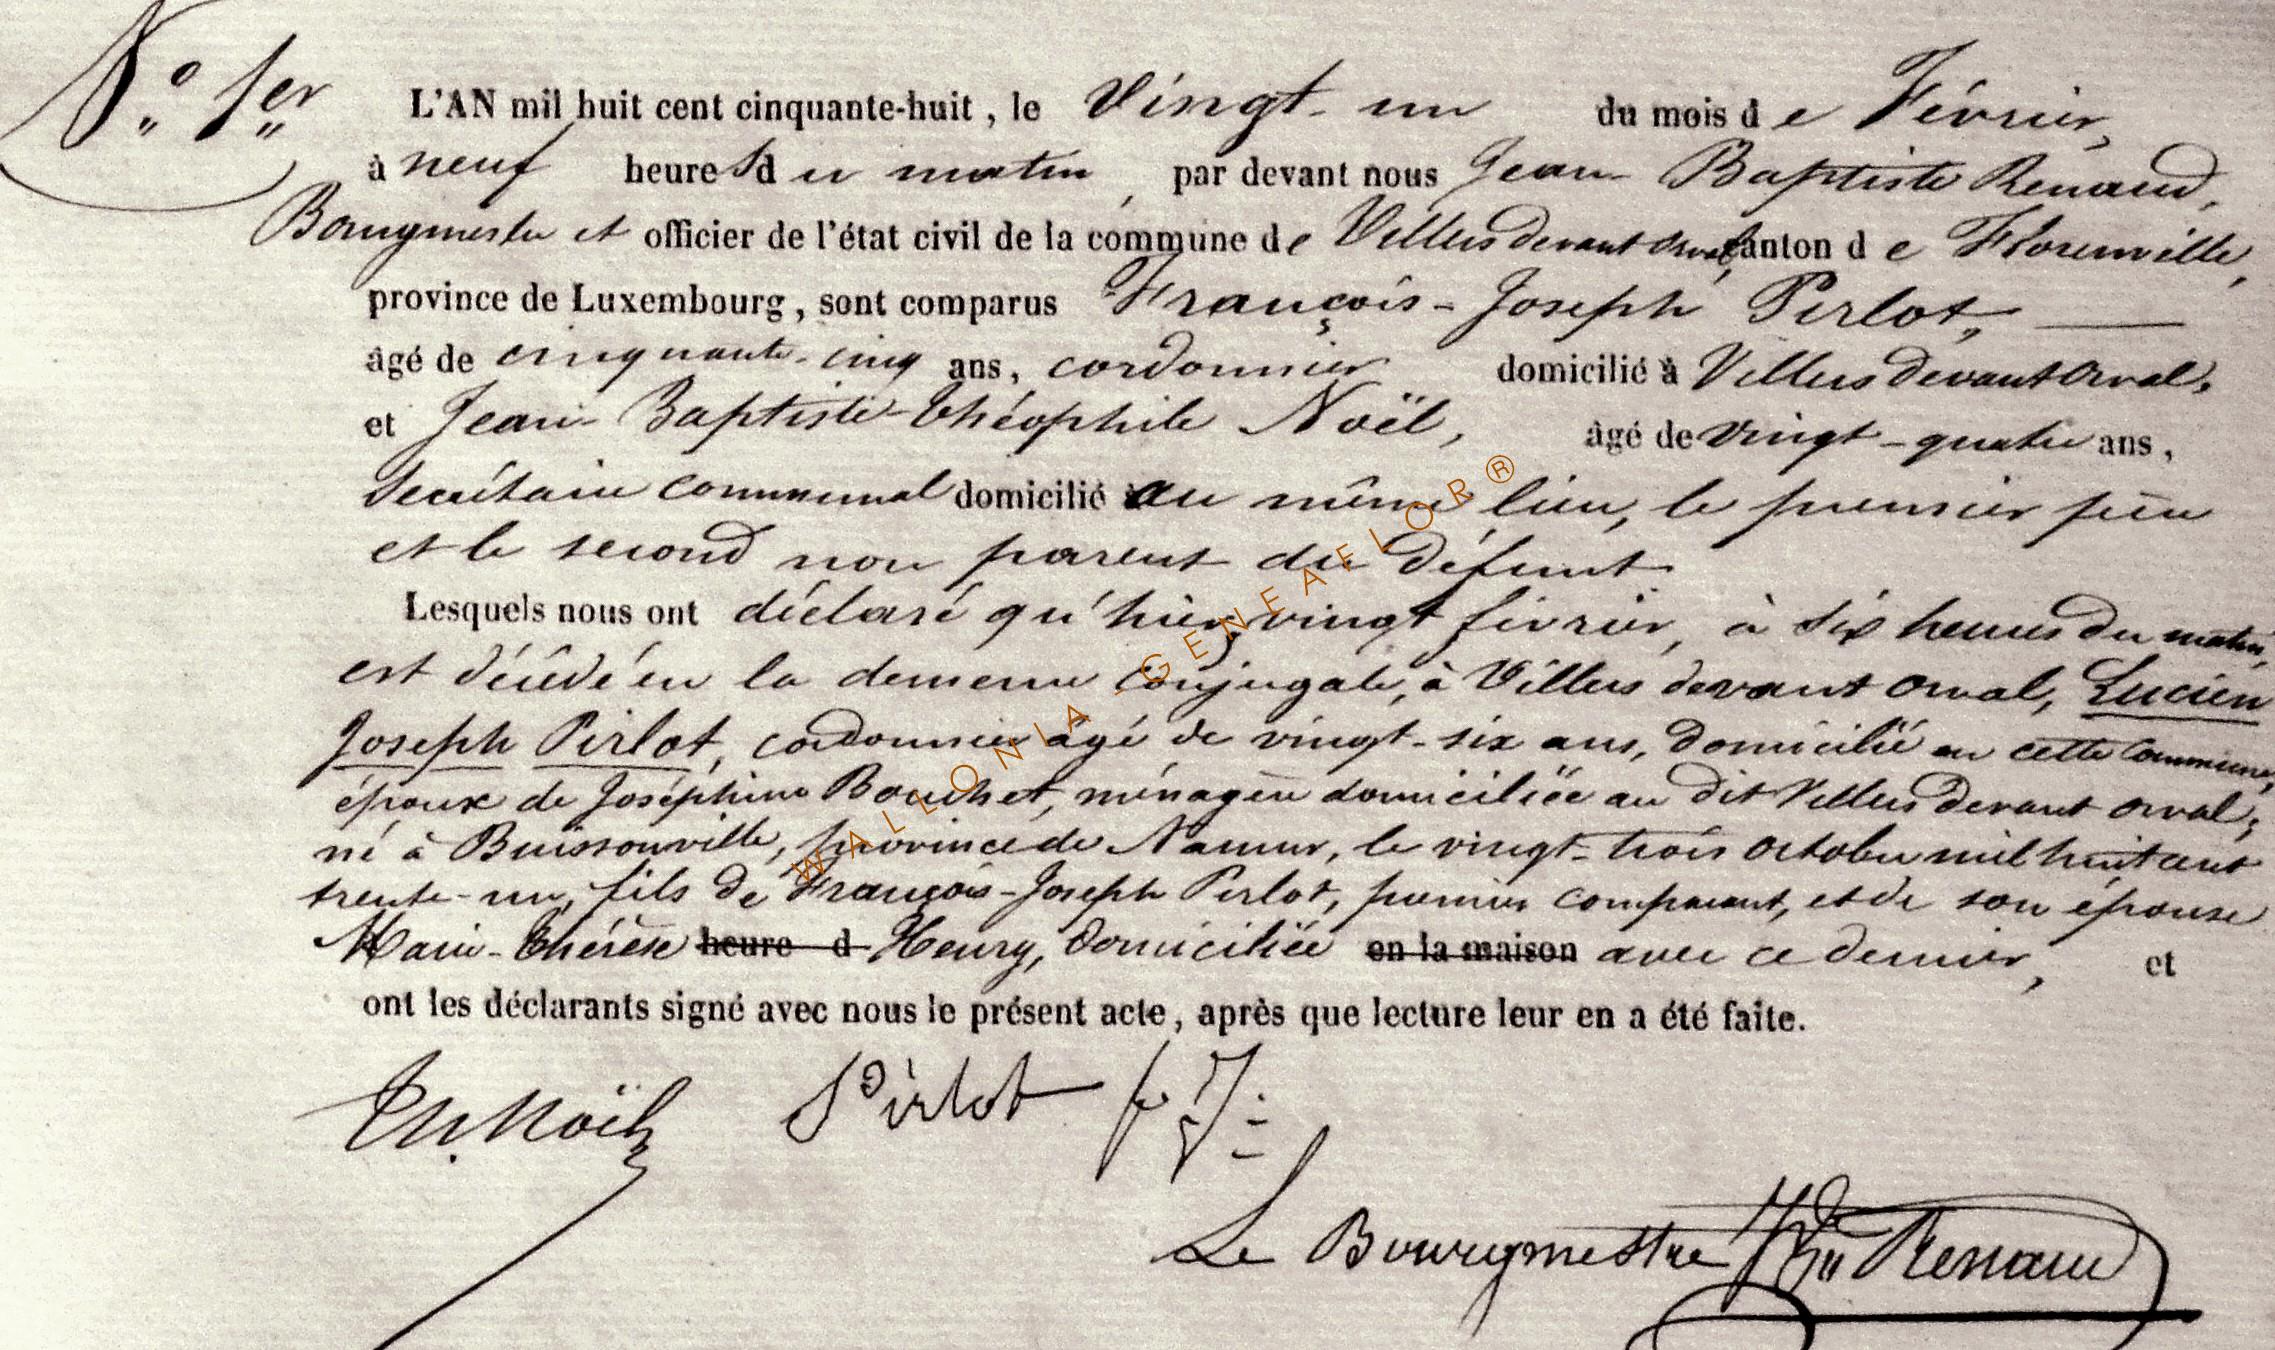 N.° 1er
L'AN mil huit cent cinquante-huit, le Vingt-un du mois de Février,
à neuf heures du matin, par devant nous Jean Baptiste Renaud,
Bourgmestre et officier de l'état civil de la commune de Villers devant Orval, canton de Florenville,
province de Luxembourg, sont comparus François-Joseph Pirlot,
âgé de cinquante-cinq ans, cordonnier domicilié à Villers devant Orval,
et Jean-Baptiste-Théophile Noël, âgé de vingt-quatre ans,
Secrétaire communal domicilié au même lieu, le premier père
et le second non parent du défunt.
Lesquels nous ont déclaré qu'hier, vingt février, à six heures du matin,
est décédé en la demeure conjugale, à Villers devant Orval, Lucien
Joseph Pirlot, cordonnier âgé de vingt-six ans, domicilié en cette commune,
époux de Joséphine Bouchet, ménagère domiciliée au dit Villers devant Orval;
né à Buissonville, province de Namur, le vingt-trois Octobre mil huit cent
trente-un, fils de François-Joseph Pirlot, premier comparant, et de son épouse
Marie-Thérèse heure d Henry, domiciliée en la maison avec ce dernier, et
ont les déclarants signé avec nous le présent acte, après que lecture leur en a été faite.
Th. Noël Pirlot f J.
Le Bourgmestre JBte Renaud
WALLONIA-GENEAFLOR®